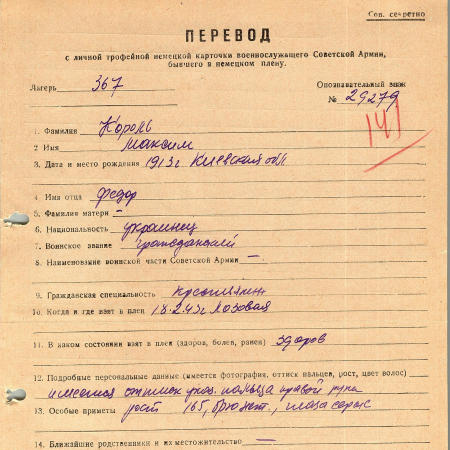 Сов. секретно
ПЕРЕВОД
с личной трофейной немецкой карточки военнослужащего Советской Армии,
бывшего в немецком плену.
Лагерь 367
Опознавательный знак
№ 29279
141
1. Фамилия Король
2 Имя Максим
3. Дата и место рождения 1913г Киевская обл
4. Имя отца Федор
5. Фамилия матери —
6. Национальность украинец
7. Воинское звание гражданский
8. Наименование воинской части Советской Армии —
9. Гражданская специальность крестьянин
10. Когда и где взят в плен 18.2.43г Лозовая
11. В каком состоянии взят в плен (здоров, болен, ранен) здоров
12. Подробные персональные данные (имеется фотография, оттиск пальцев, рост, цвет волос)
имеется оттиск указ. пальца правой руки
13. Особые приметы рост 165, брюнет., глаза серые
14. Ближайшие родственники и их местожительство —